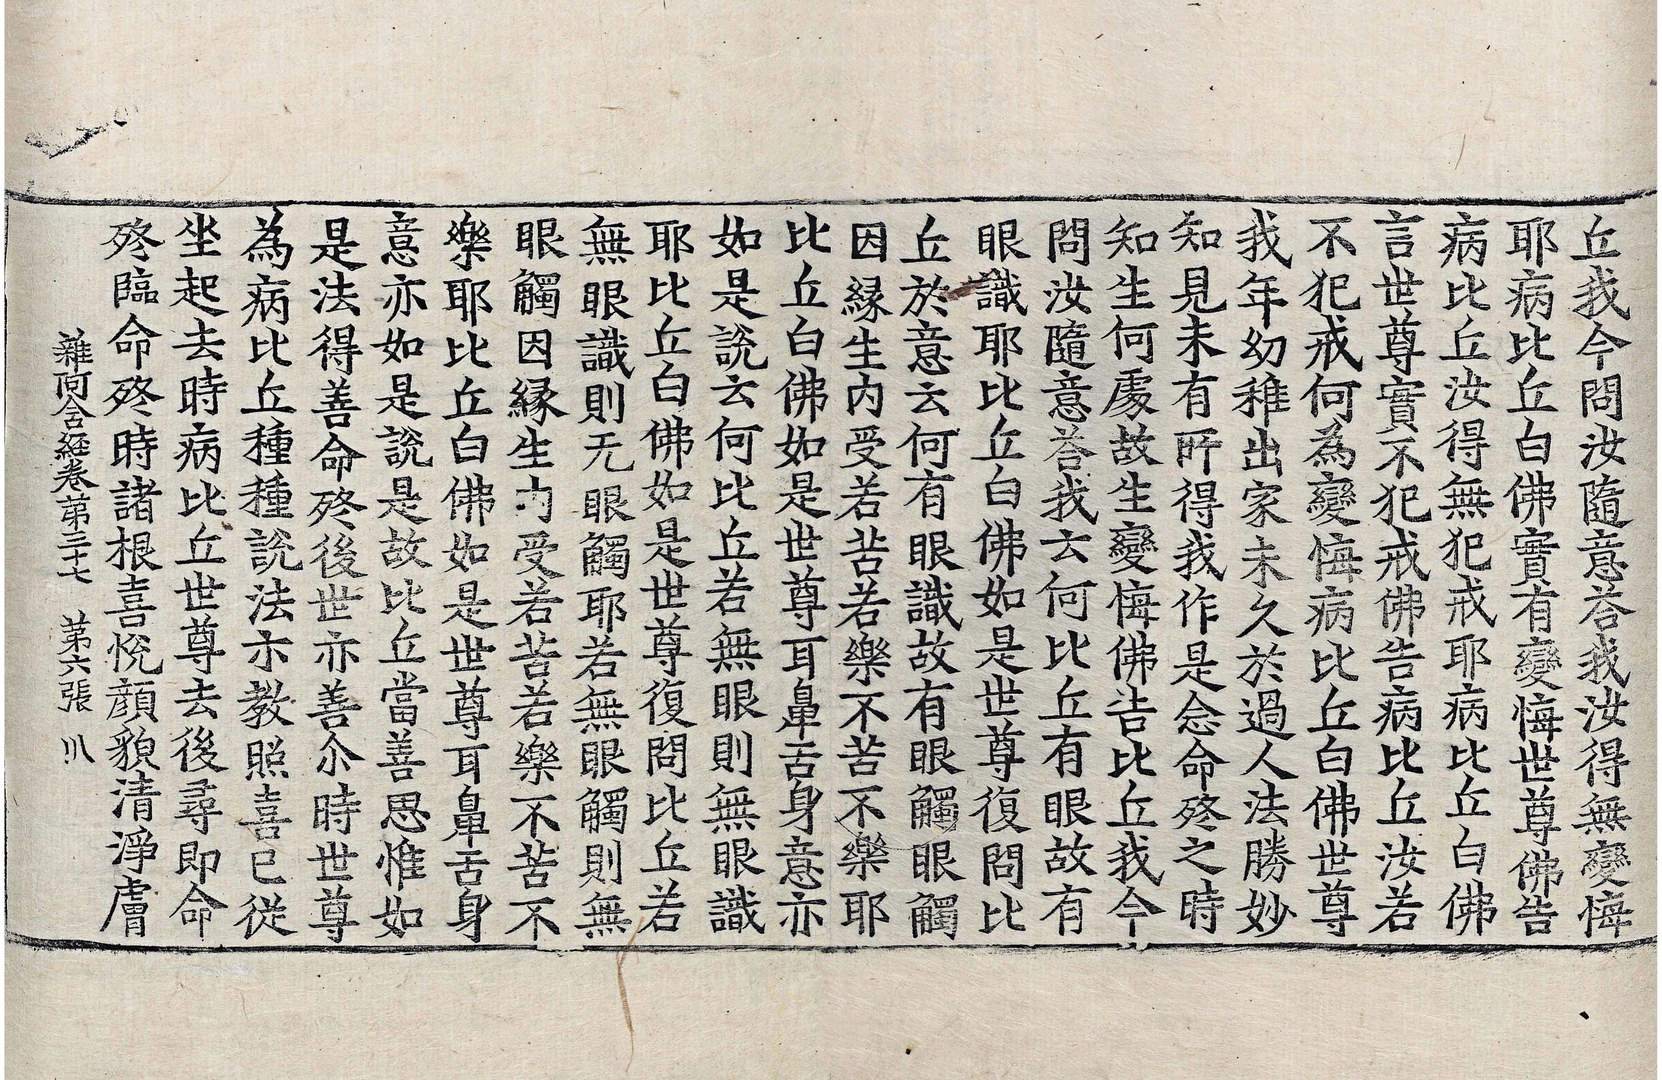 丘我今問汝隨意荅我汝得無變悔
耶病比丘白佛實有變悔世尊佛告
病比丘汝得無犯戒耶病比丘白佛
言世尊實不犯戒佛告病比丘汝若
不犯戒何為變悔病比丘白佛世尊
我年幼稚出家未久於過人法勝妙
知見未有所得我作是念命終之時
知生何處故生變悔佛告比丘我今
問汝隨意荅我云何比丘有眼故有
眼識耶比丘白佛如是世尊復問比
丘於意云何有眼識故有眼觸眼觸
因縁生内受若苦若樂不苦不樂耶
比丘白佛如是世尊耳鼻舌身意亦
如是說云何比丘若無眼則無眼識
耶比丘白佛如是世尊復問比丘若
無眼識則无眼觸耶若無眼觸則無
眼觸因縁生内受若苦若樂不苦不
樂耶比丘白佛如是世尊耳鼻舌身
意亦如是說是故比丘當善思惟如
是法得善命終後世亦善尒時世尊
為病比丘種種說法示教照喜已從
坐起去時病比丘世尊去後尋即命
終臨命終時諸根喜悅顔貌清淨膚
雜阿含經卷第三十七 第六張 川